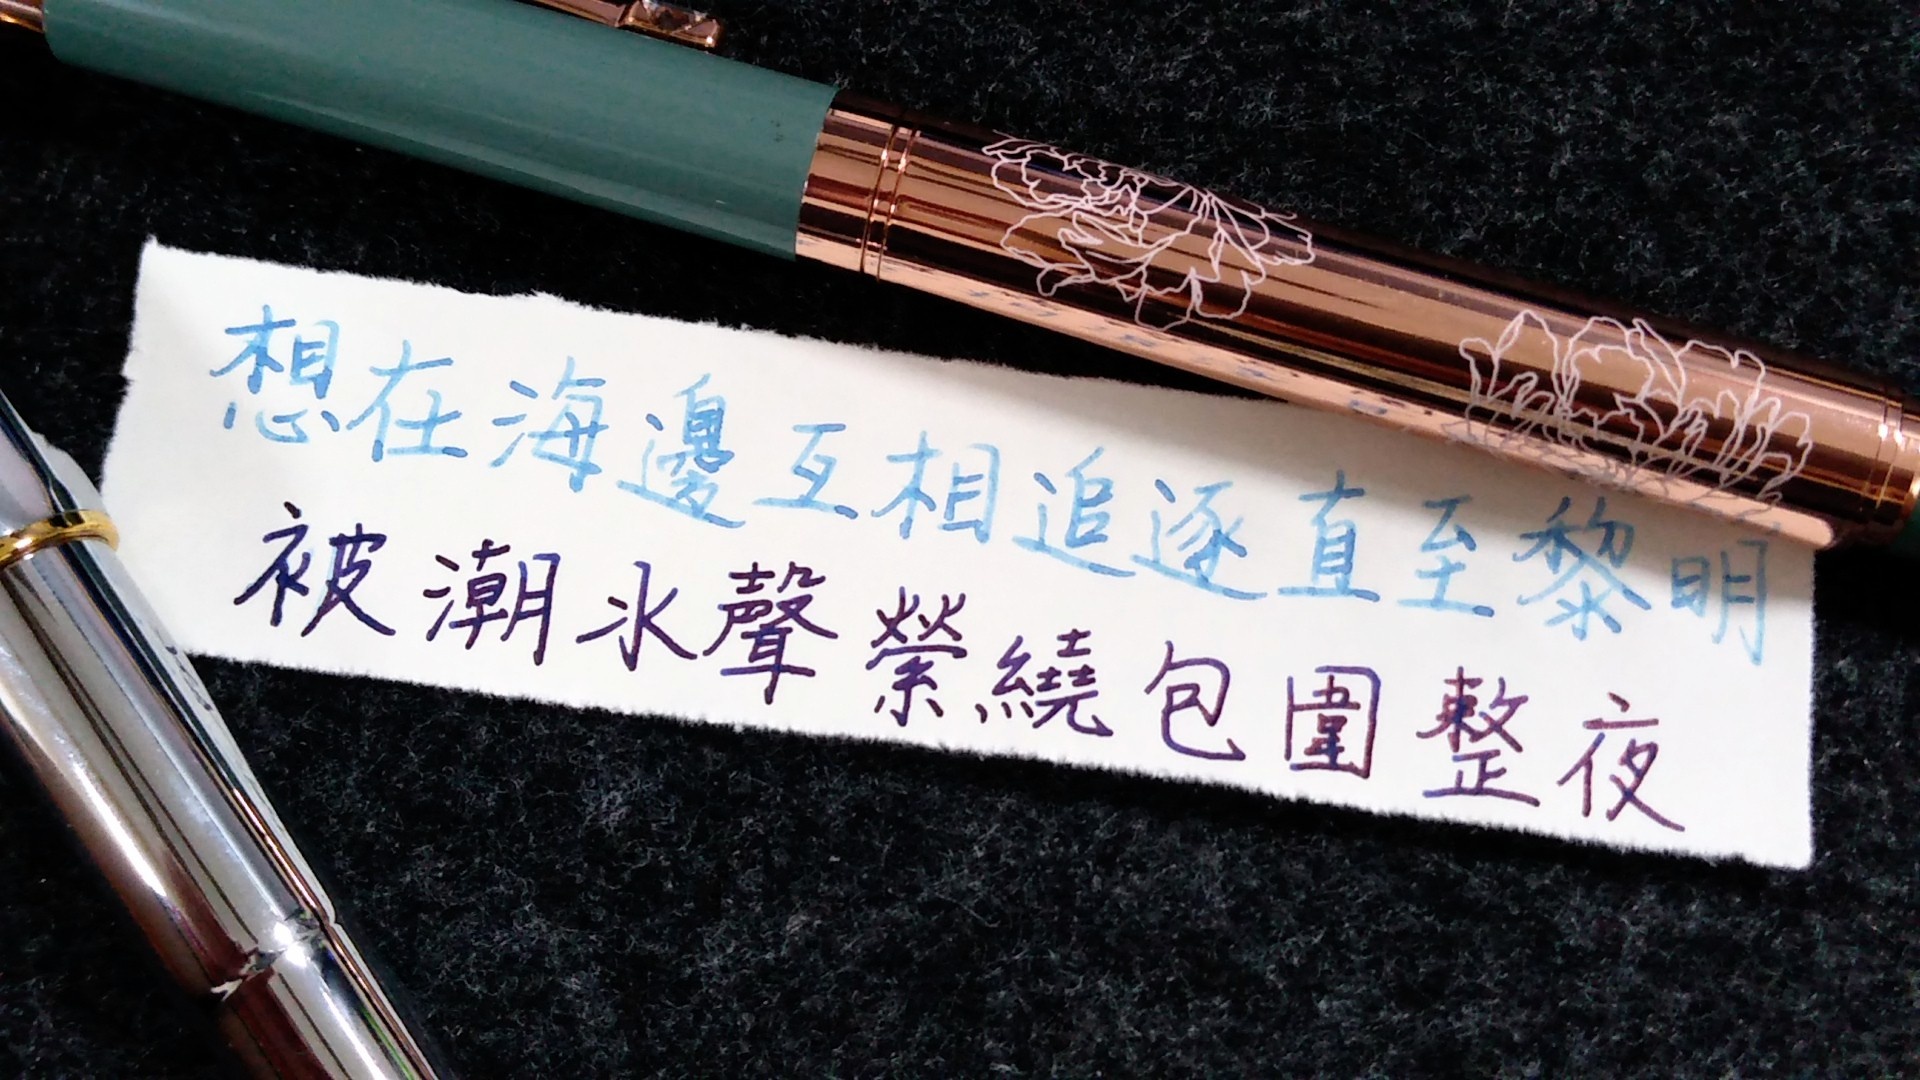 想在海邊互相追逐直至黎明
被潮水聲縈繞包圍整夜